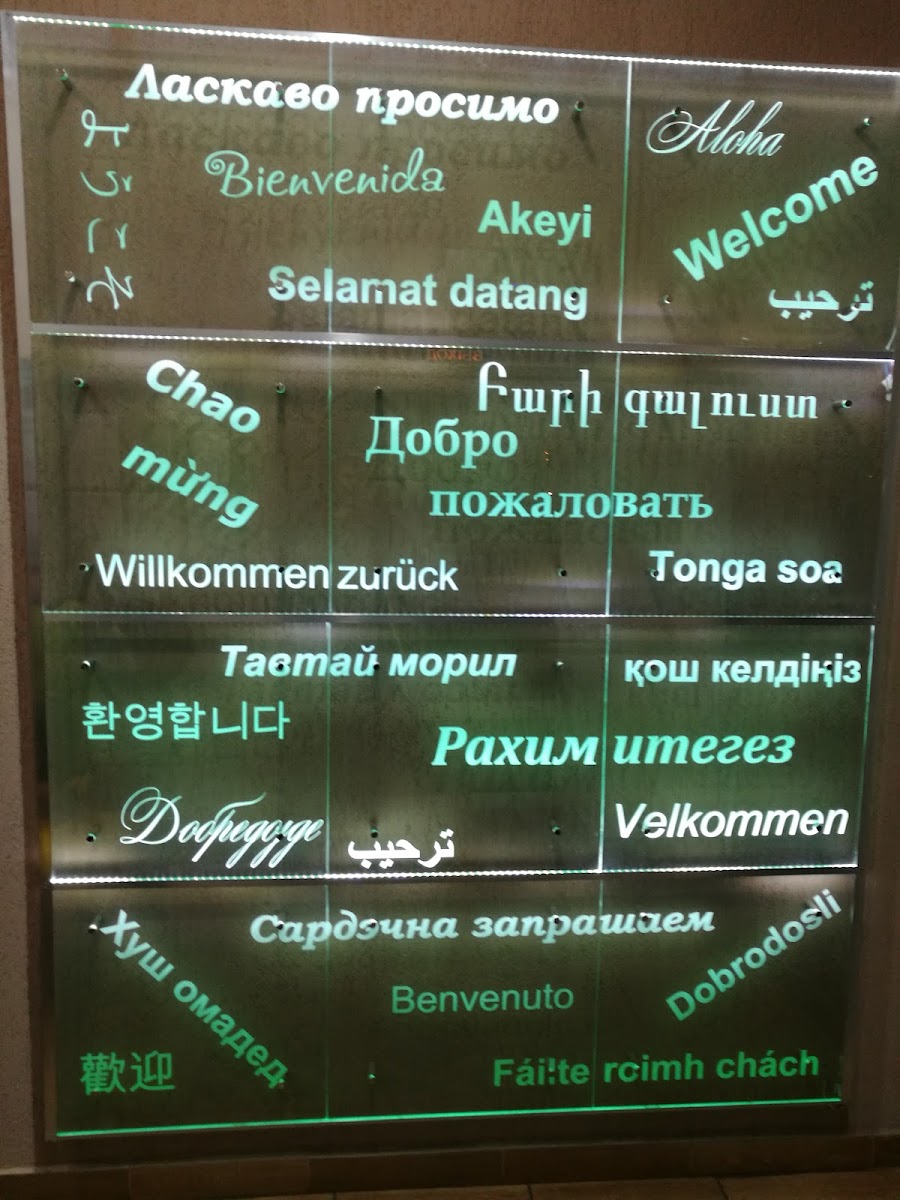 Ласкаво просимо
Aloha
ようこそ
Bienvenida
Welcome
Akeyi
Selamat datang
ترحيب
Chao
mừng
Բարի գալուստ
Добро
пожаловать
Willkommen zurück
Tonga soa
Тавтай морил
қош келдіңіз
환영합니다
Рахим итегез
Добредојде
ترحيب
Velkommen
Хуш омадед
Сардэчна запрашаем
Dobrodosli
Benvenuto
歡迎
Fáilte roimh chách